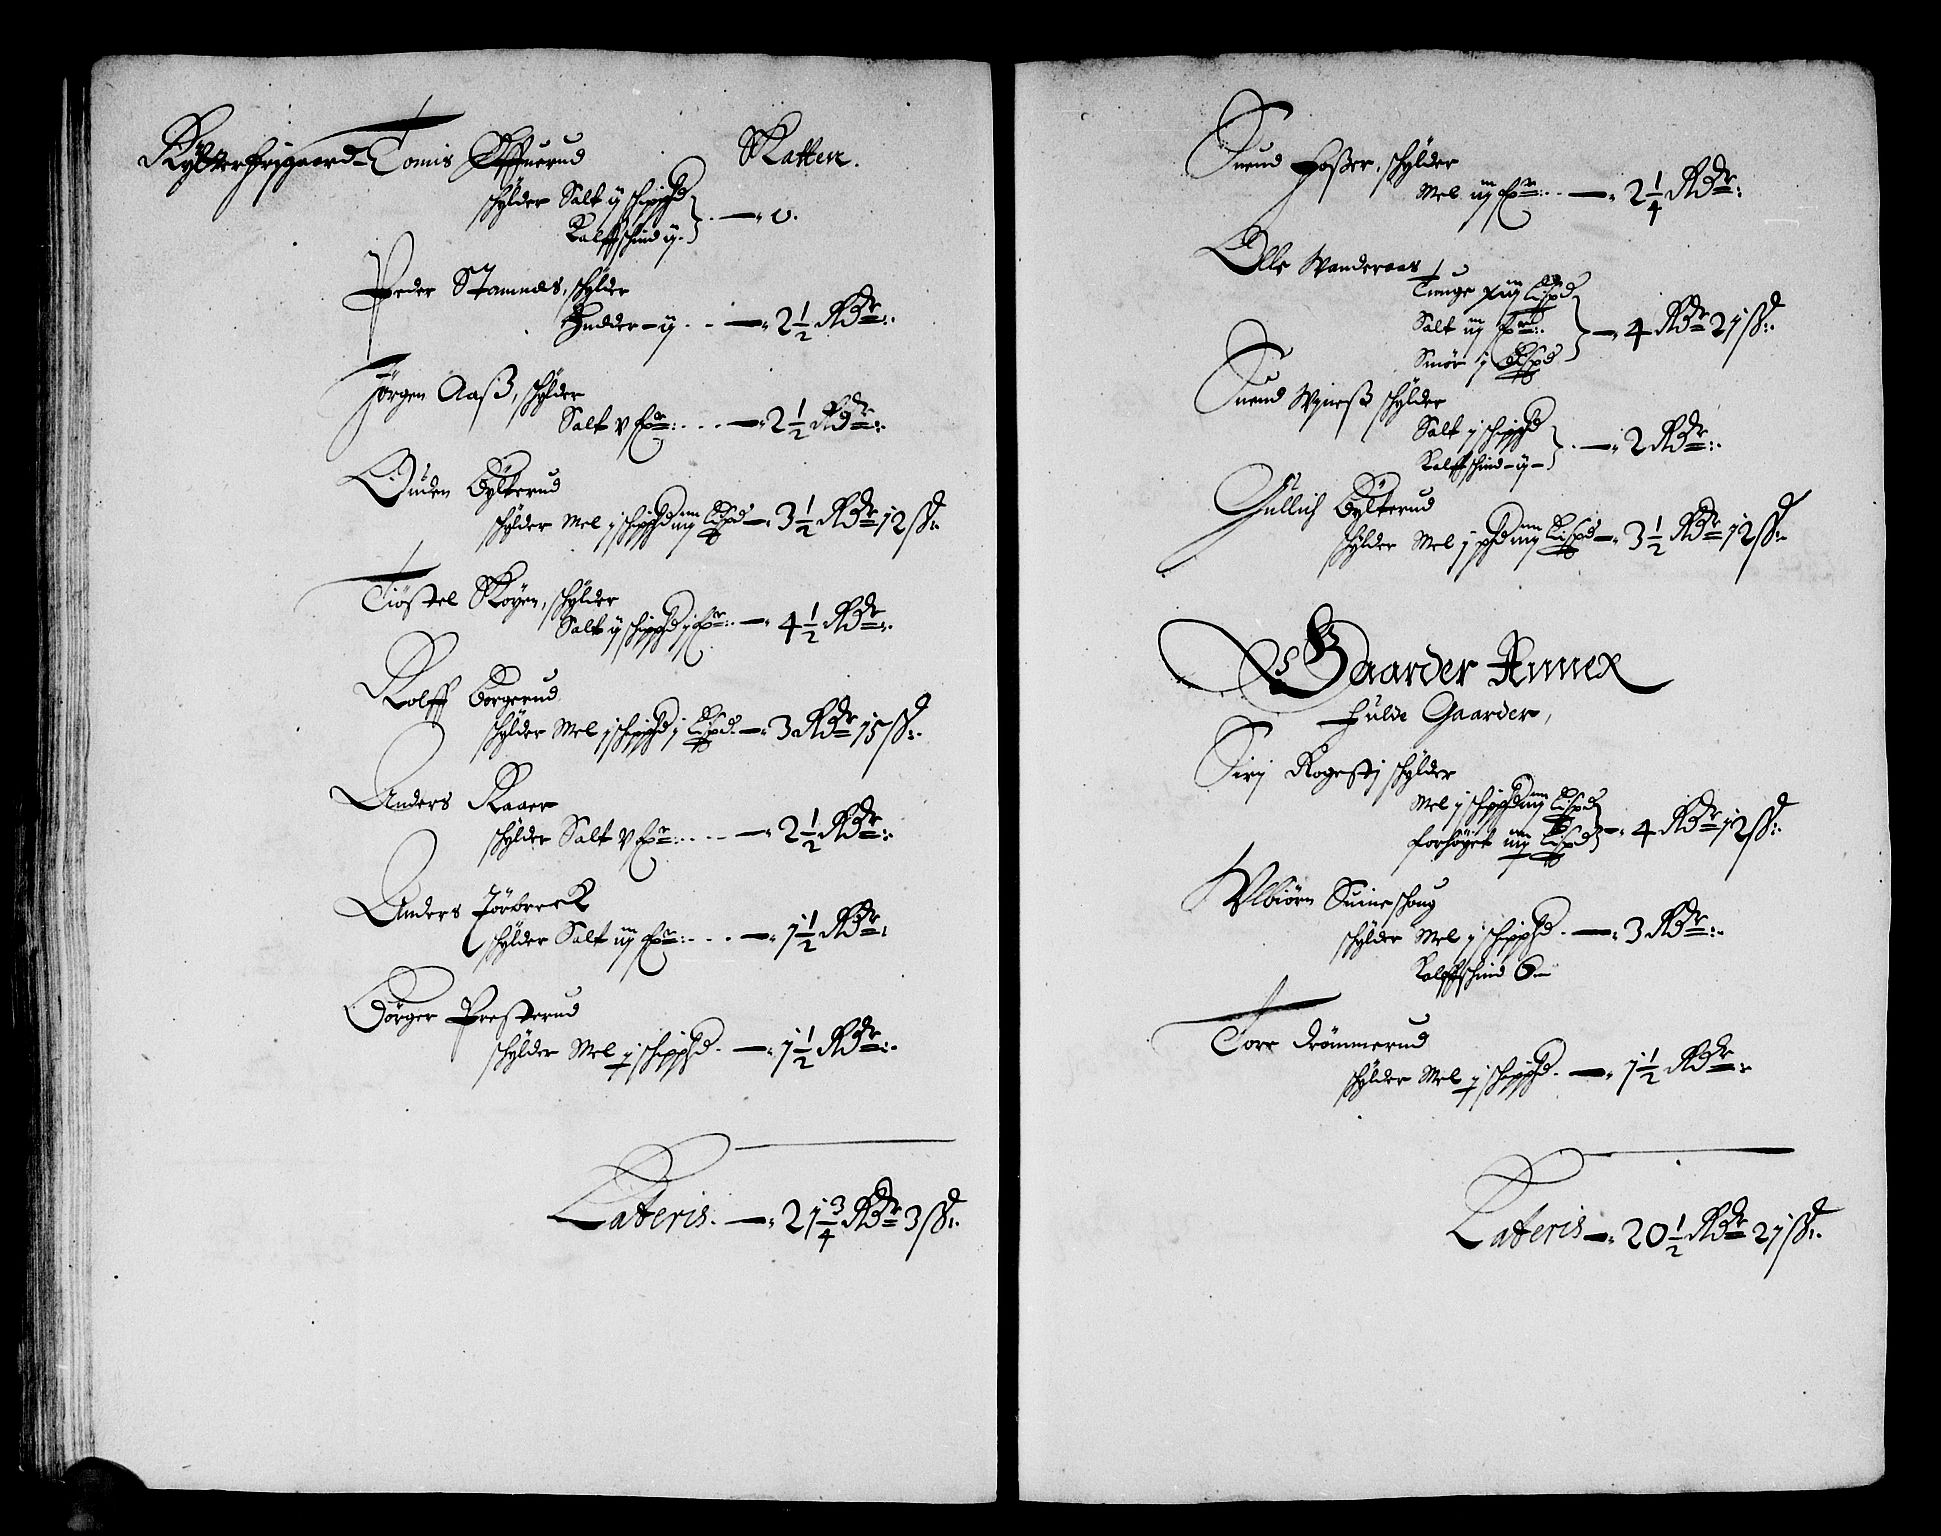 Rytterfrigaard – Tomis Effuerud Skatten.
schylder Salt ij schippd
Kalffschind ij. — 0.
Peder Stamnæs, schylder
Hudder – ij . . — 2½ Rdr:
Jørgen Aasß, schylder
Salt v fr: . . . — 2½ Rdr:
Ouden Bylterud
schylder Mel j schippd iiij Lispd — 3½ Rdr 12 ß:
Tiøstel Skoyen, schylder
Salt ij schippd j fr: — 4½ Rdr:
Rolff Borgerud
schylder Mel j schippd j Lispd. — 3 Rdr 15 ß:
Anders Raaer
schylder Salt v fr: . . . — 2½ Rdr:
Anders Jørbreck
schylder Salt iij fr: . . . — 1½ Rdr:
Børger Presterud
schylder Mel j schippd. — 1½ Rdr:
Lateris. — 21¾ Rdr 3 ß:
Suend Foßer, schylder
Mel iij fr: . . — 2¼ Rdr:
Olle Wanderaas
Tunge xiij Lispd
Salt iij fr:
Smør j Bispd — 4 Rdr 21 ß:
Suend Wijneß schylder
Salt j schippd
Kalffschind – ij – . — 2 Rdr:
Gullich Bylterud
schylder Mel j schipd iiij Lispd — 3½ Rdr 12 ß:
Gaarder Annex
Fulde Gaarder,
Sirj Rogestj schylder
Mel j schippd iiij Lispd
forhøyet iiij Lispd — 4 Rdr 12 ß:
Wlbiørn Suineschoug
schylder Mel j schippd. — 3 Rdr:
Kalffschind 6 —
Tore Drømmerud
schylder Mel j schippd. — 1½ Rdr:
Lateris — 20½ Rdr 21 ß: